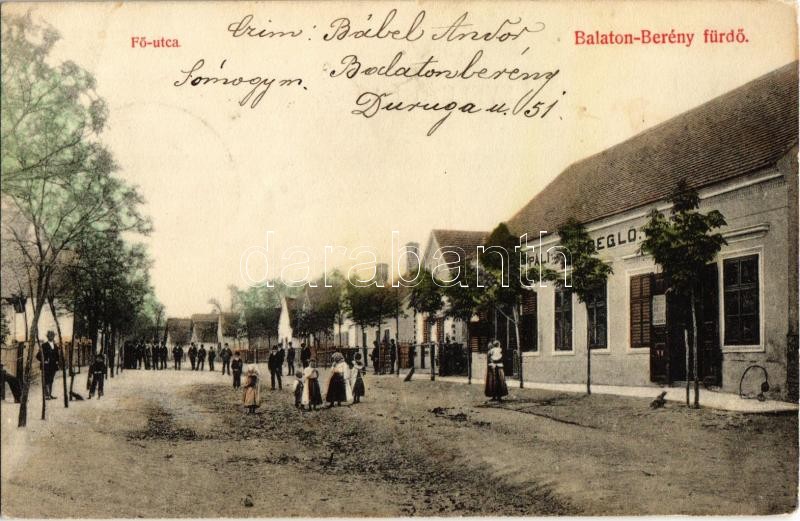 Fő-utca.
Balaton-Berény fürdő.
Czim: Bábel Andor
Sómogym. Balatonberény
Duruga u. 51.
darabanth.com